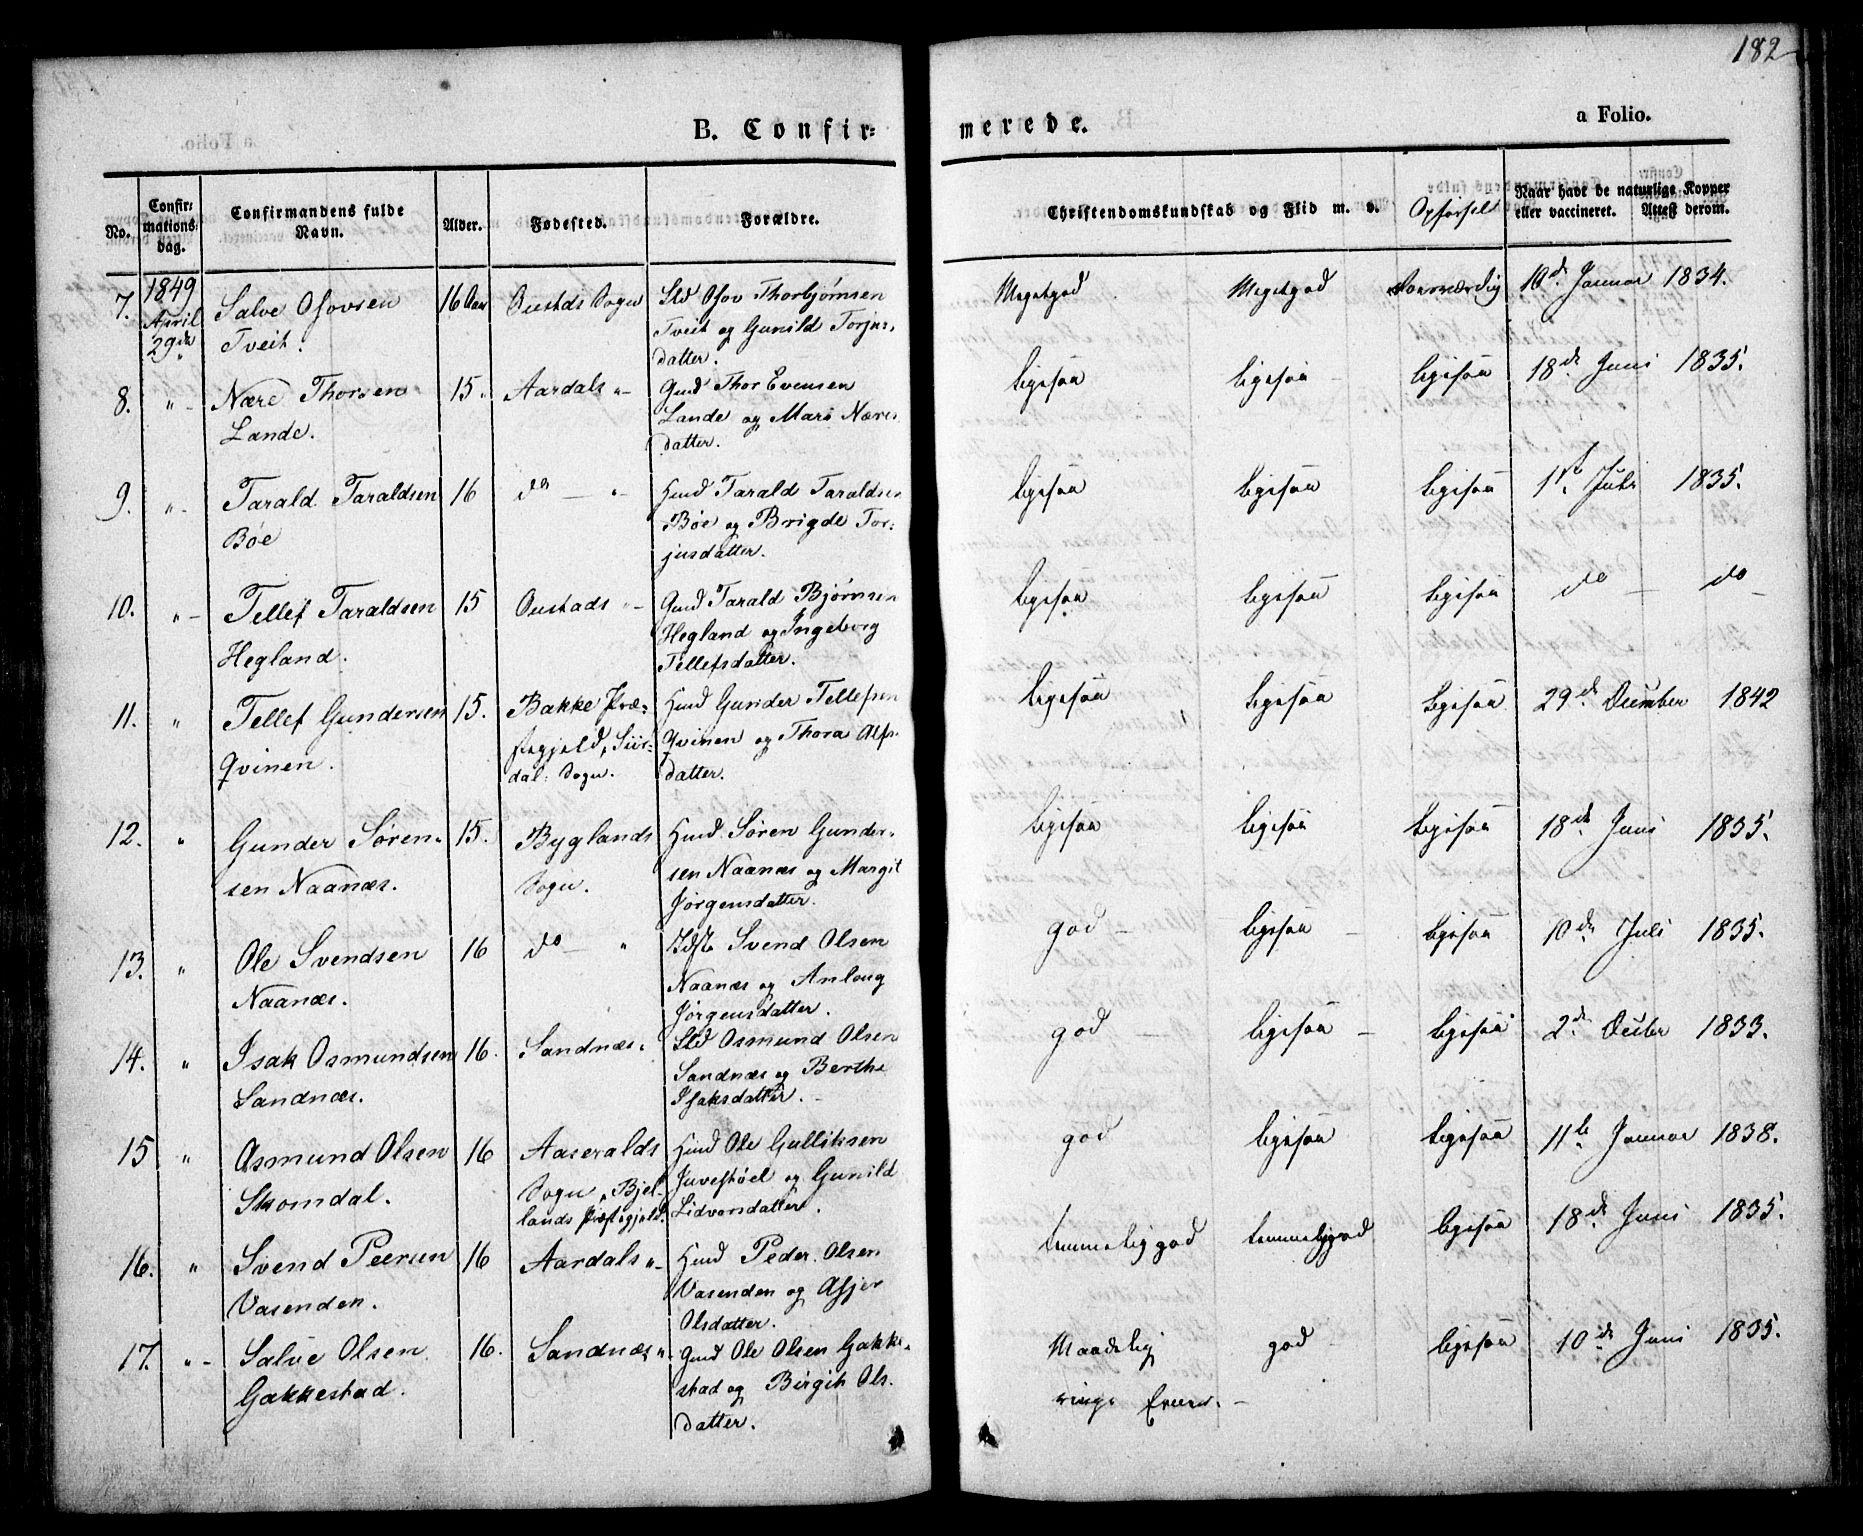 182
B. Confir=
merede.
a Folio.
No.
Confir=
mations=
dag.
Confirmandens fulde
Navn.
Alder.
Fødested.
Forældre.
Christendomskundskab og Flid m. v.
Opførsel
Naar havt de naturlige Kopper
eller vaccineret. Attest derom.
7. 1849 April 29de Salve Osovsen Tveit. 16 Aar Oustads Sogn
Osov Thorbjørnsen
Tveit og Gunild Torjus,
datter.
Megetgod Megetgod 10d Januar 1834.
8. "- Nære Thorsen Lande. 15. Aardals "-
Gmd Thor Evensen
Lande og Mari Næres
datter.
ligesaa ligesaa - ligesaa 18de Juni 1835.
9. "- Tarald Taraldsen Bøe 16 do - "-
Huusmd Tarald Taraldsen
Bøe og Brigde Tor=
jusdatter.
ligesaa ligesaa ligesaa 1ste Juli 1835.
10. "- Tellef Taraldsen Hegland. 15 Oustads "-
Gmd Tarald Bjørnsen
Hegland og Ingeborg
Tellefsdatter.
ligesaa ligesaa ligesaa do - do -
11. " Tellef Gundersen Qvinen. 15. Bakke Præ= stegjeld, Siir= dal: Sogn.
Gunder Tellefsen
Qvinen og Thora Alfs
datter.
ligesaa ligesaa ligesaa 29de December 1842
12. " Gunder Søren= sen Naanæs. 15. Byglands Sogn.
Søren Gunder=
sen Naanæs og Margit
Jørgensdatter.
ligesaa ligesaa ligesaa 18de Juni 1835.
13. " Ole Svendsen Naanæs. 16 do - "
Svend Olsen
Naanæs og Anlaug
Jørgensdatter.
god - ligesaa - ligesaa 10de Juli 1835.
14. " Isak Osmundsen Sandnæs. 16. Sandnæs "
Osmund Olsen
Sandnæs og Berthe
Isaksdatter. -
god - ligesaa - ligesaa 2de Decbr 1833.
15 " Asmund Olsen Skomdal. 16 Aaseralds Sogn, Bjel= lands Præstegjeld.
Ole Gullitsen
Juvestøel og Gunild
Lidvorsdatter.
god ligesaa ligesaa 11te Januar 1838.
16. " Svend Peersen Vasenden. 16 Aardals "-
Peder Olsen
Vasenden og Assjer
Olsdatter.
temmelig god temmeliggod ligesaa 18de Juni 1835.
17. "- Salve Olsen Gakkestad. 16. Sandnæs "
Gmd Ole Olsen Gakke=
stad og Birgit Ols.
datter.
Maadelig
ringe god - ligesaa 10de Juni 1835.